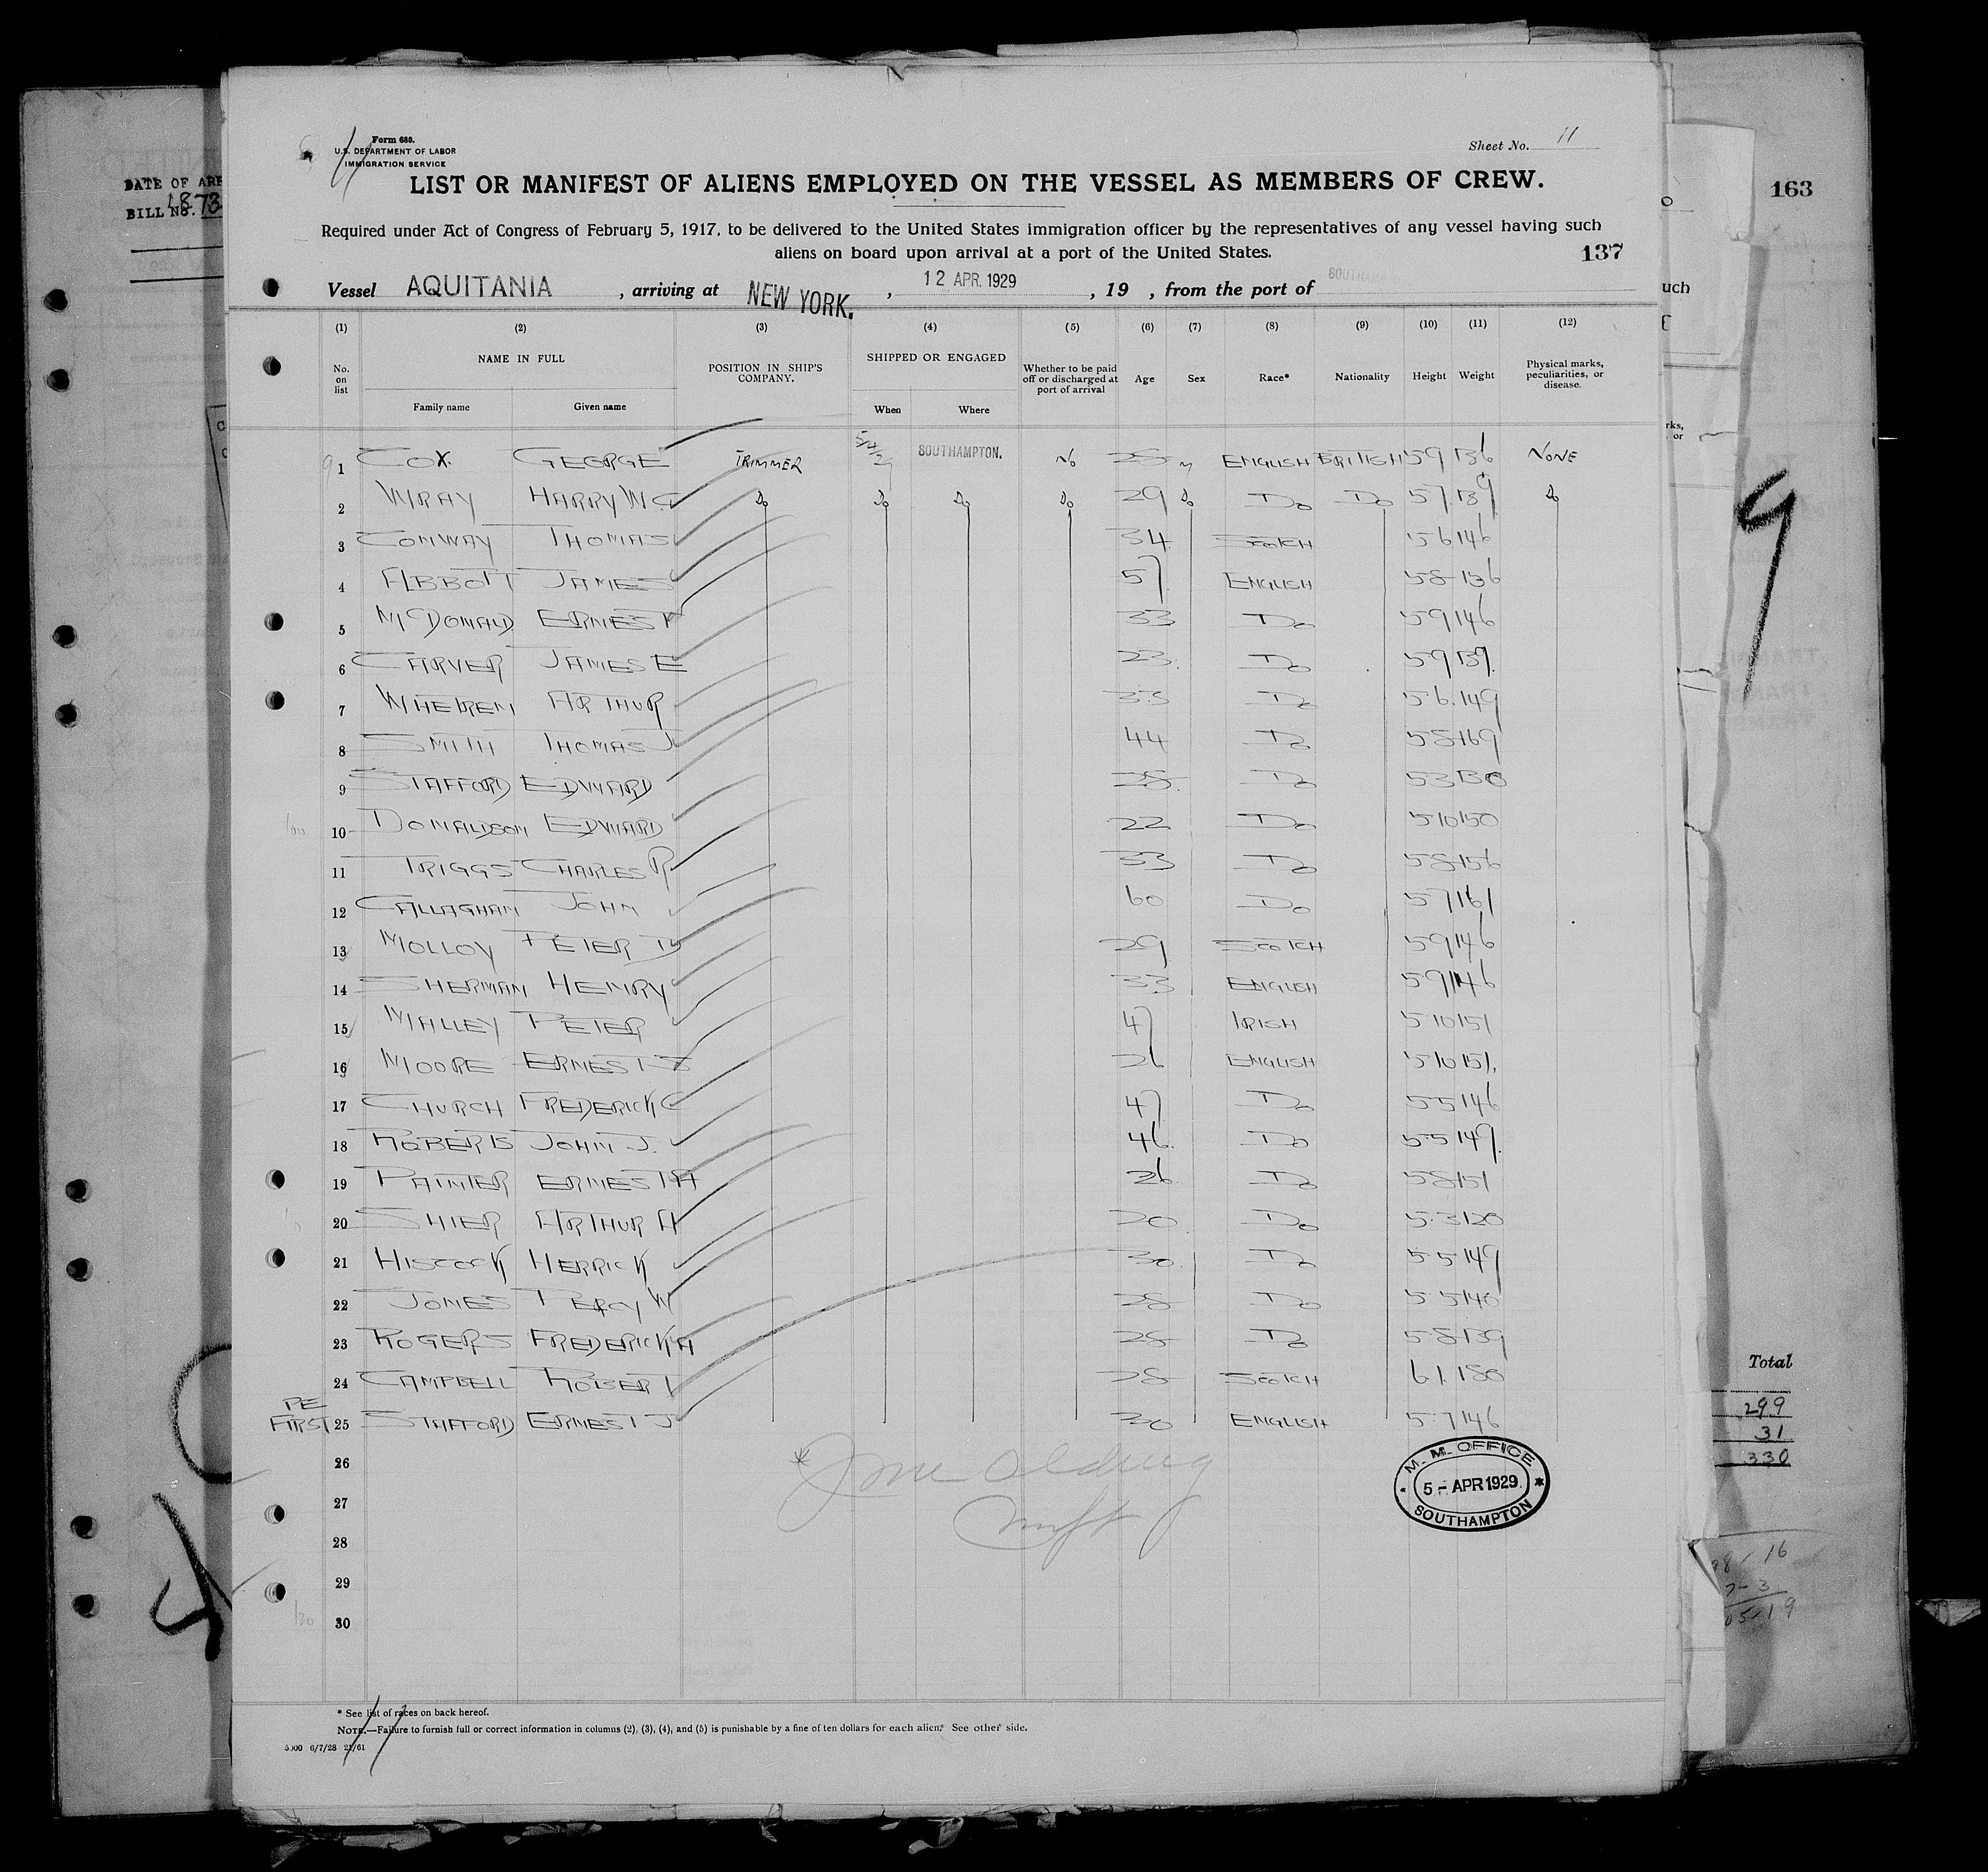 Form 680.
U.S. DEPARTMENT OF LABOR
IMMIGRATION SERVICE
Sheet No. 11
LIST OR MANIFEST OF ALIENS EMPLOYED ON THE VESSEL AS MEMBERS OF CREW.
Required under Act of Congress of February 5, 1917, to be delivered to the United States immigration officer by the representatives of any vessel having such
aliens on board upon arrival at a port of the United States.
137
Vessel AQUITANIA , arriving at NEW YORK. , 12 APR. 1929 , 19 , from the port of SOUTHAMPTON
(1) (2) (3) (4) (5) (6) (7) (8) (9) (10) (11) (12)
No. on list NAME IN FULL POSITION IN SHIP'S COMPANY. SHIPPED OR ENGAGED Whether to be paid off or discharged at port of arrival Age Sex Race* Nationality Height Weight Physical marks, peculiarities, or disease.
Family name Given name When Where
1 COX. GEORGE TRIMMER 5/4/29 SOUTHAMPTON. No 28 M ENGLISH BRITISH 59 136 NONE
2 WRAY HARRY W.G Do Do Do Do 29 Do Do Do 57 139 Do
3 CONWAY THOMAS 34 SCOTCH 56 146
4 ABBOTT JAMES 57 ENGLISH 58 136
5 McDONALD ERNEST 33 Do 59 146
6 CARVER JAMES E 23 Do 59 139
7 ARTHUR 33 Do 5.6. 149
8 SMITH THOMAS J 44 Do 58 169
9 STAFFORD EDWARD 28 Do 53 130
10 DONALDSON EDWARD 22 Do 510 150
11 TRIGGS CHARLES R 33 Do 58 156
12 CALLAGHAN JOHN 60 Do 57 161
13 MOLLOY PETER D 29 SCOTCH 59 146
14 SHERMAN HENRY 33 ENGLISH 59 146
15 MALLEY PETER 47 IRISH 510 151
16 MOORE ERNEST J 26 ENGLISH 510 151.
17 CHURCH FREDERICK C 47 Do 55 146
18 ROBERTS JOHN J. 46 Do 55 149
19 PAINTER ERNEST A 26 Do 58 151
20 SHIER ARTHUR A 20 Do 5.3 120
21 HISCOCK HERRICK 30 Do 55 149
22 JONES PERCY W 28 Do 55 140
23 ROGERS FREDERICK A 28 Do 58 139
24 CAMPBELL ROBERT 28 SCOTCH 61. 180
PE
FIRST 25 STAFFORD ERNEST J 30 ENGLISH 5.7 146
26
27
28
29
30
M. M. OFFICE
5 - APR 1929
SOUTHAMPTON
* See list of races on back hereof.
NOTE.—Failure to furnish full or correct information in columns (2), (3), (4), and (5) is punishable by a fine of ten dollars for each alien. See other side.
5000 6/7/28 21/61
11
DATE OF ARR
BILL No. 1873
163
uch
rks,
or
9
Total
299
31
330